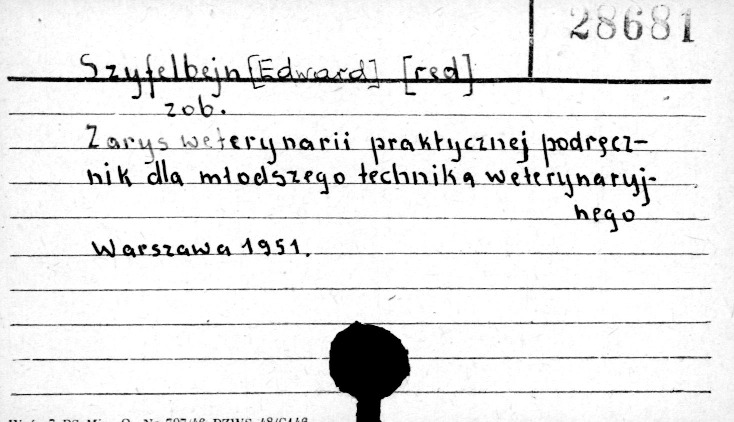 28681
Szyfelbejn [Edward] [red]
zob.
Zarys weterynarii praktycznej podręcz-
nik dla młodszego technika weterynaryj-
nego
Warszawa 1951.